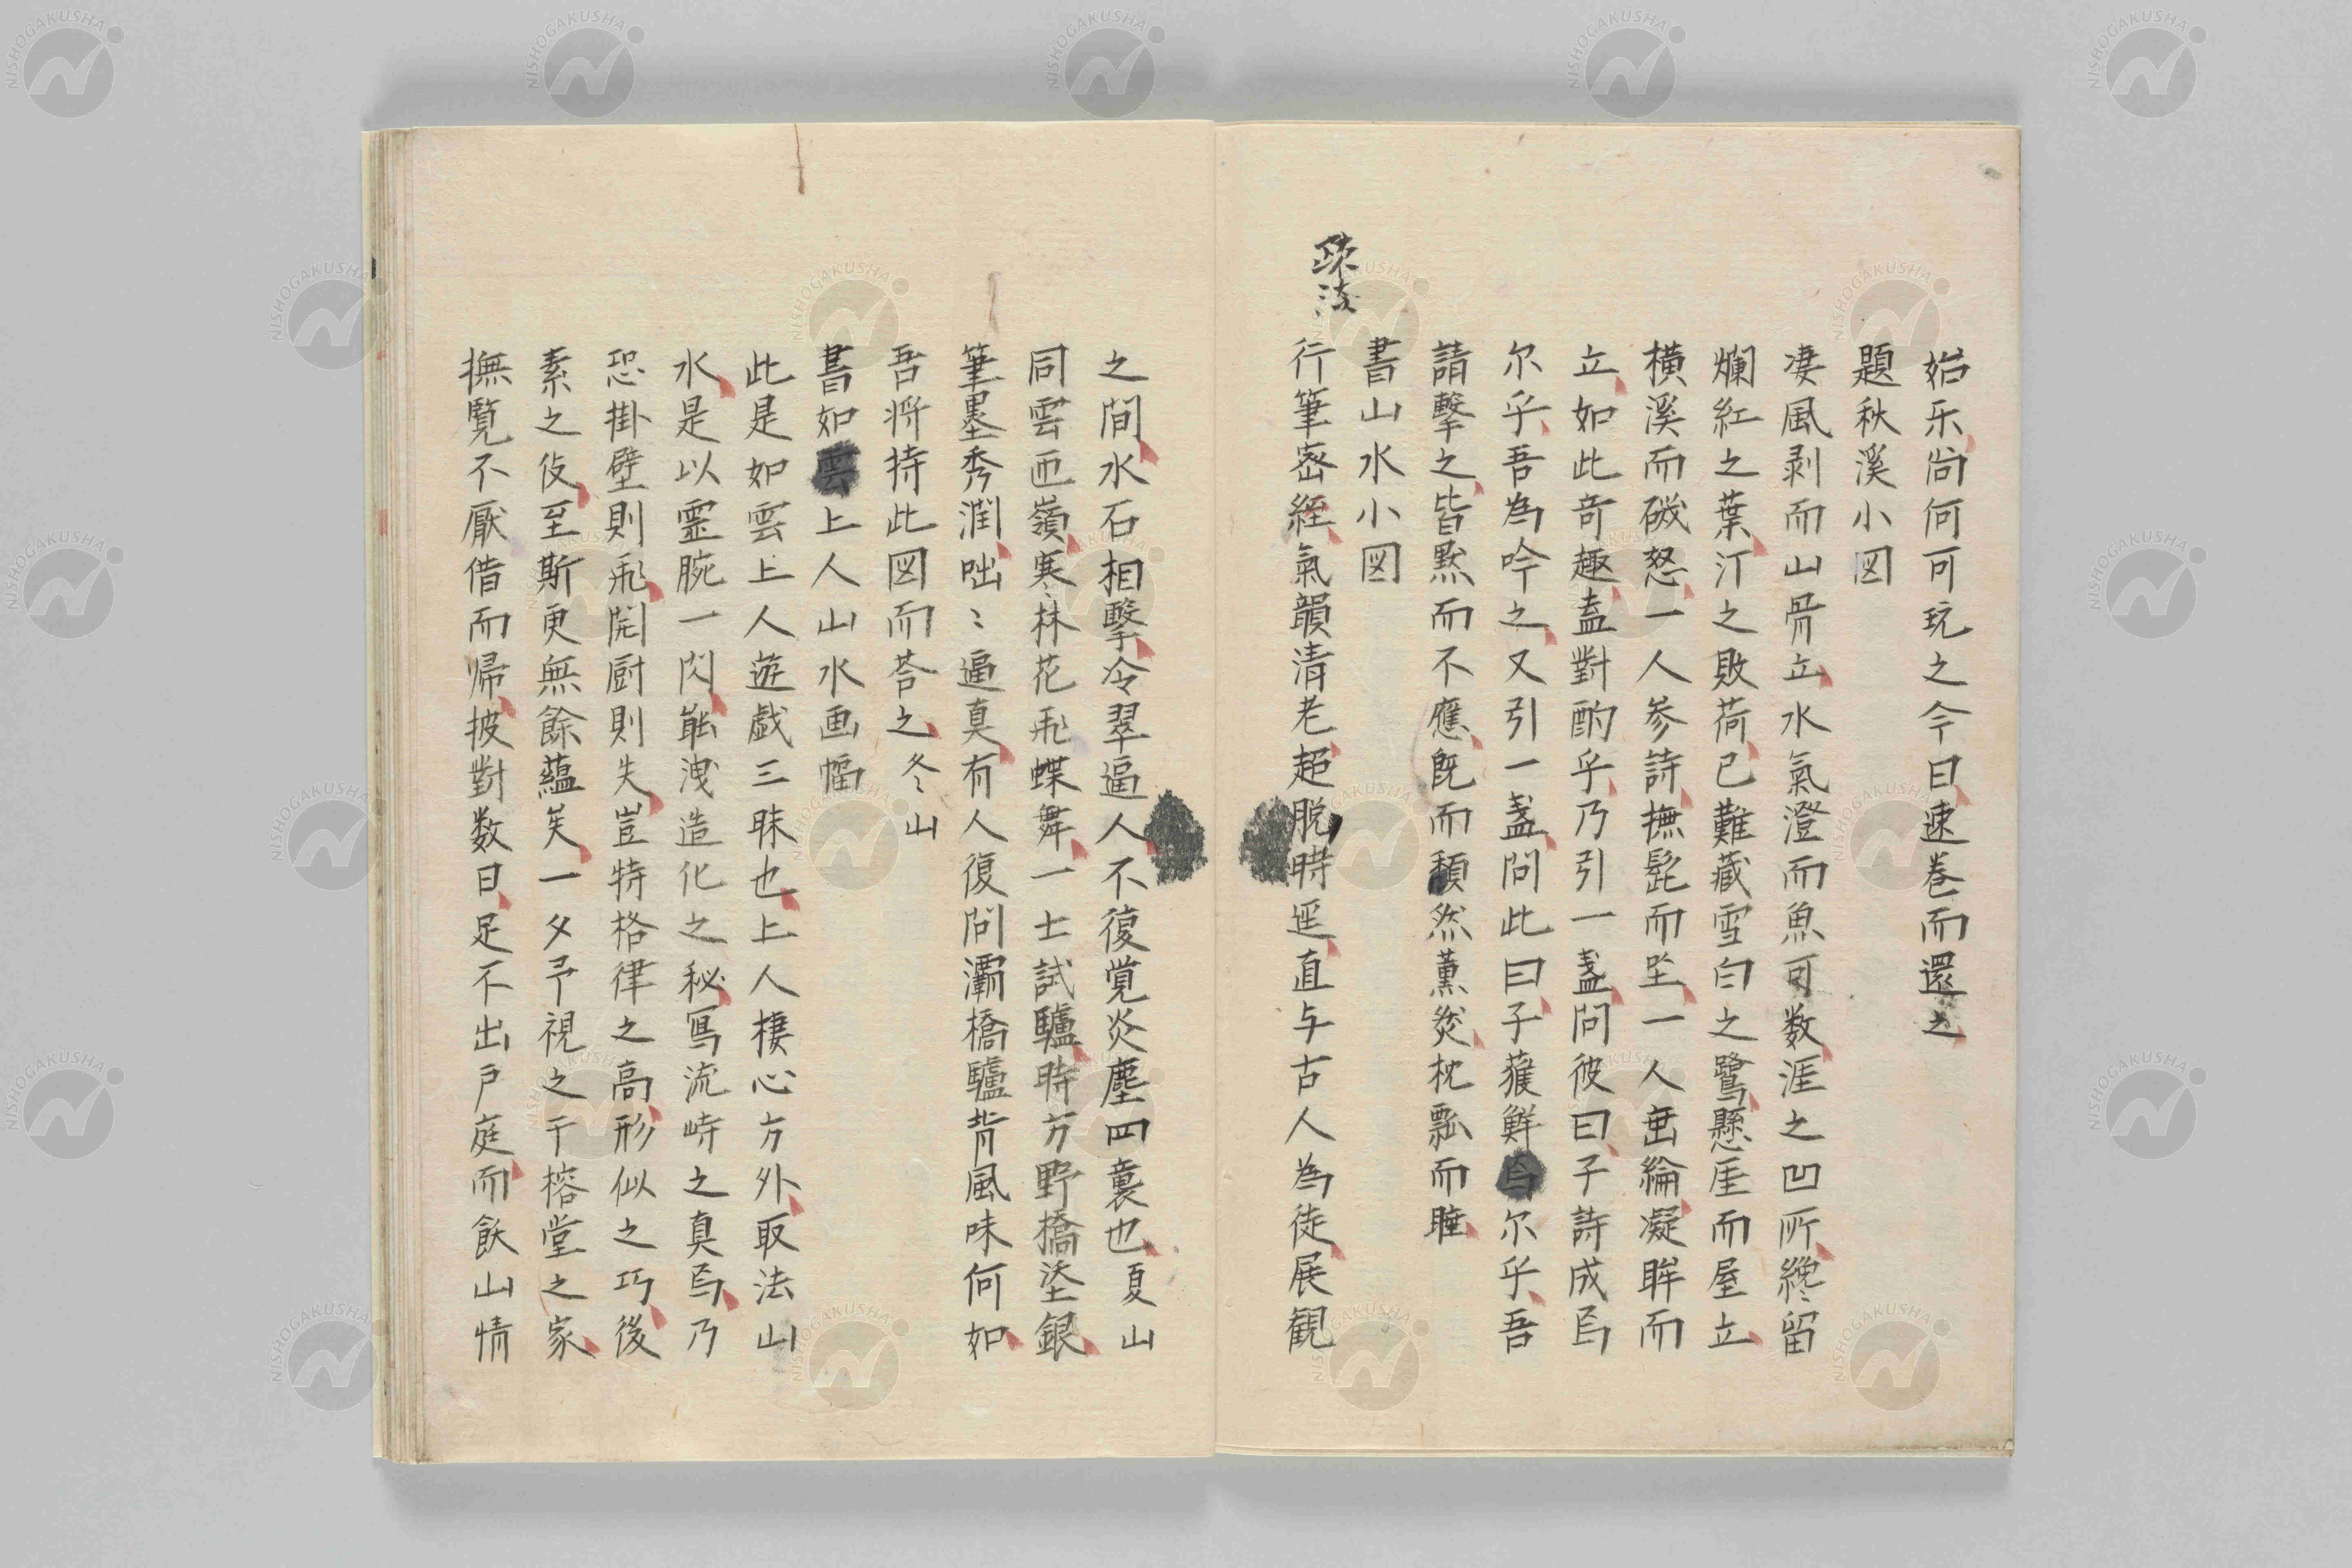 始乐尚何可玩之今日速卷而還之
題秋溪小図
凄風剥而山骨立水氣澄而魚可数涯之凹所纔留
爛紅之葉汀之敗荷已難藏雪白之鷺懸厓而屋立
横溪而磯怒一人参詩撫髭而坐一人垂綸凝眸而
立如此奇趣盍對酌乎乃引一盞問彼曰子詩成焉
尓乎吾為吟之又引一盞問此曰子獲鮮焉尓乎吾
請擊之皆黙而不應既而頽然薫然枕瓢而睡
書山水小図
疎法
行筆密経氣韻清老超脱時逕直与古人為徒展観
之間水石相擊冷翠逼人不復覚炎塵四裏也夏山
同雲匝嶺寒林花飛蝶舞一士試驢時方野橋塗銀
筆墨秀潤咄〻逼真有人復問灞橋驢背風味何如
吾将持此図而荅之冬山
書如雲上人山水画幅
此是如雲上人遊戯三昧也上人棲心方外取法山
水是以霊腕一閃能洩造化之秘寫流峙之真焉乃
恐掛壁則飛開厨則失豈特格律之高形似之巧後
素之伎至斯更無餘蘊矣一夕予視之于榕堂之家
撫覧不厭借而帰披對数日足不出戸庭而飫山情
NISHOGAKUSHA